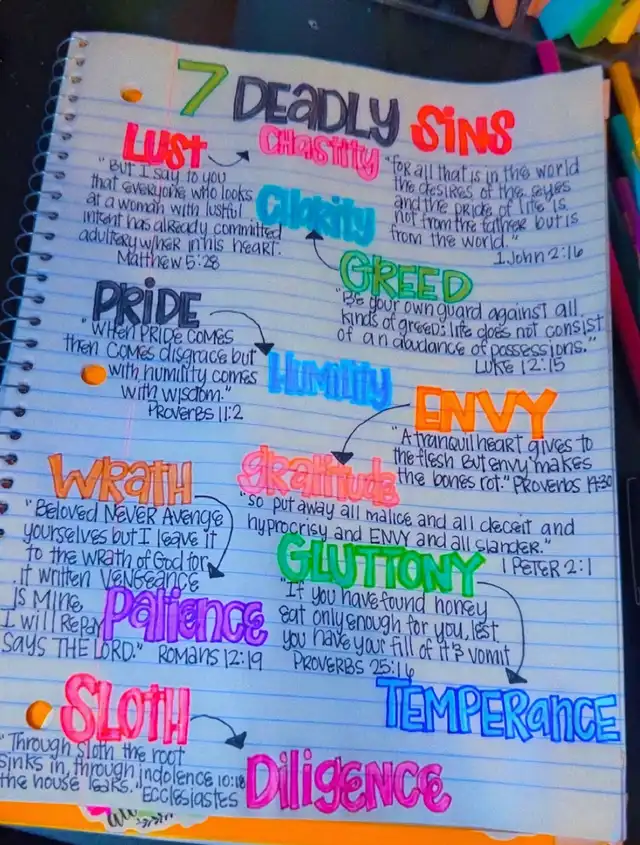 7 DEADLY SINS
LUST
CHASTITY
"BUT I SAY TO YOU
that everyone who looks
at a woman with lustful
intent has already committed
adultery w/her in his heart.
Matthew 5:28
"for all that is in the world
the desires of the eyes
and the pride of life is
not from the father but is
from the world."
1 John 2:16
Charity
GREED
"Be your own guard against all
kinds of greed: life does not consist
of an abudance of possessions."
LUKE 12:15
PRIDE
"When PRIDE COMES
then comes disgrace but
with humility comes
with wisdom."
Proverbs 11:2
Humility
ENVY
"A tranquil heart gives to
the flesh but envy makes
the bones rot." Proverbs 14:30
gratitude
"so put away all malice and all deceit and
hyprocrisy and ENVY and all slander."
1 PETER 2:1
WRATH
"Beloved NEVER AVENGE
yourselves but I leave it
to the wrath of God for
it written VENGEANCE
IS MINE,
I will REPAY
SAYS THE LORD." ROMANS 12:19
Patience
GLUTTONY
"If you have found honey
eat only enough for you, lest
you have your fill of it & vomit
PROVERBS 25:16
TEMPERANCE
SLOTH
"Through sloth the root
sinks in, through indolence
the house leaks." Ecclesiastes 10:18
DILIGENCE